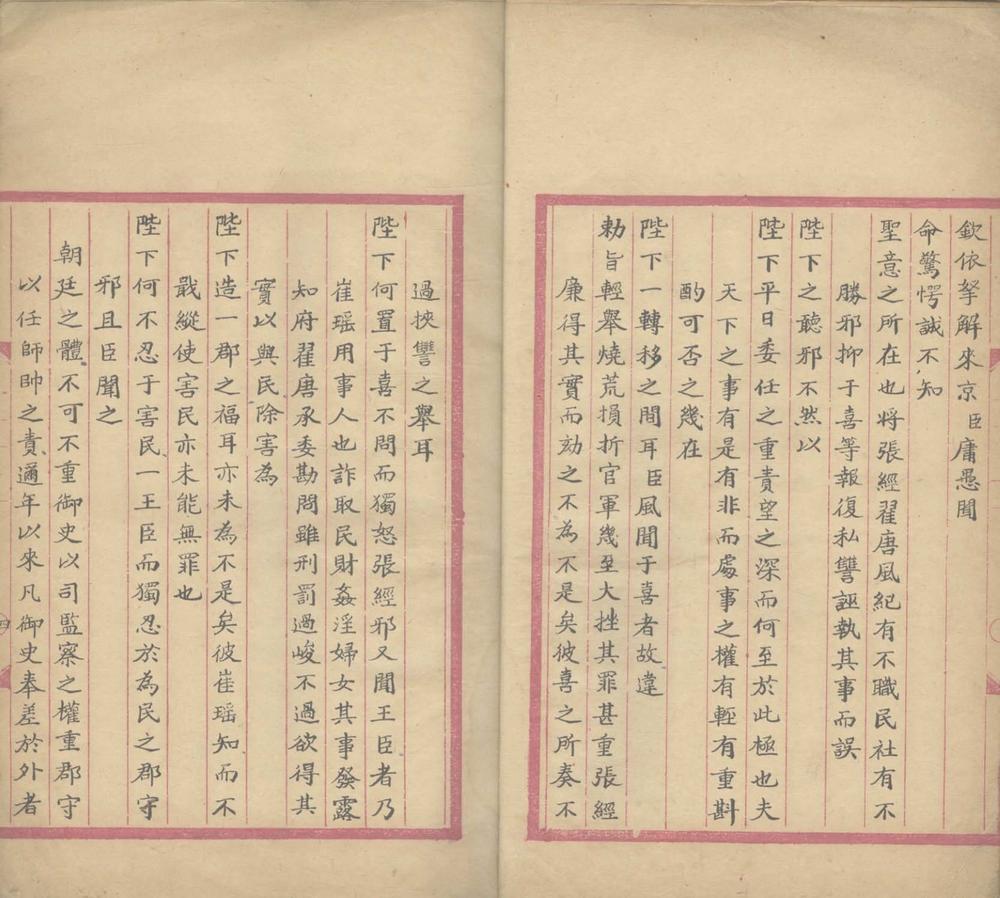 欽依拏解來京臣庸愚聞
命驚愕誠不知
聖意之所在也將張經翟唐風紀有不職民社有不
勝邪抑于喜等報復私讐誣執其事而誤
陛下之聽邪不然以
陛下平日委任之重責望之深而何至於此極也夫
天下之事有是有非而處事之權有輕有重斟
酌可否之幾在
陛下一轉移之間耳臣風聞于喜者故違
勅旨輕舉燒荒損折官軍幾至大挫其罪甚重張經
廉得其實而劾之不為不是矣彼喜之所奏不
過挾讐之舉耳
陛下何置于喜不問而獨怒張經邪又聞王臣者乃
崔瑶用事人也詐取民財姦淫婦女其事發露
知府翟唐承委勘問雖刑罰過峻不過欲得其
實以與民除害為
陛下造一郡之福耳亦未為不是矣彼崔瑶知而不
戢縱使害民亦未能無罪也
陛下何不忍于害民一王臣而獨忍於為民之郡守
邪且臣聞之
朝廷之體不可不重御史以司監察之權重郡守
以任師帥之責邇年以來凡御史奉差於外者
四